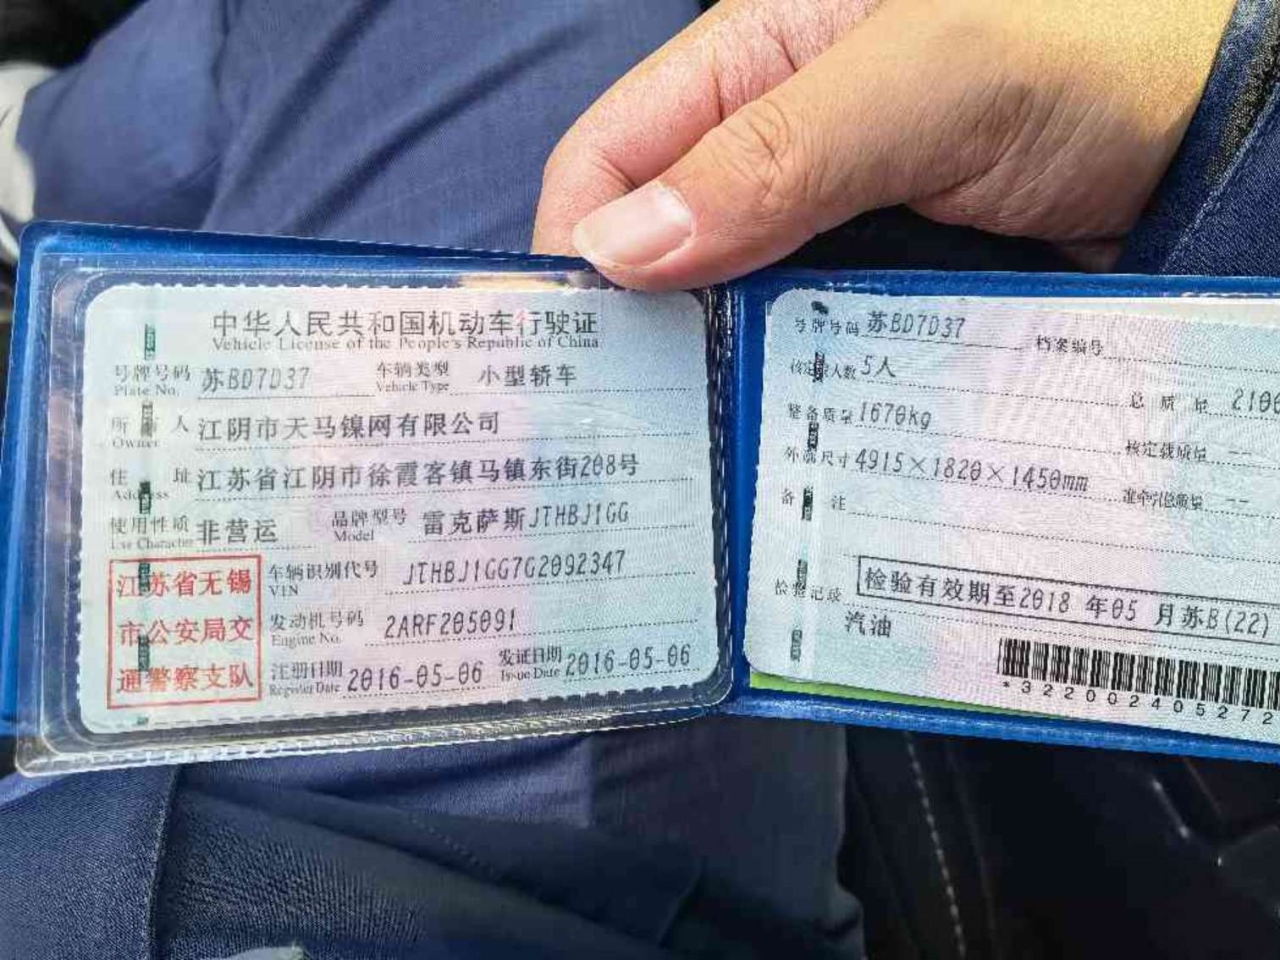 中华人民共和国机动车行驶证
Vehicle License of the People's Republic of China
号牌号码 苏BD7D37 车辆类型 小型轿车
Plate No. Vehicle Type
所 人 江阴市天马镍网有限公司
Owner
住 址 江苏省江阴市徐霞客镇马镇东街208号
Address
使用性质 非营运 品牌型号 雷克萨斯JTHBJ1GG
Use Character Model
江苏省无锡
市公安局交
通警察支队
车辆识别代号 JTHBJ1GG7G2092347
VIN
发动机号码 2ARF205091
Engine No.
注册日期 2016-05-06 发证日期 2016-05-06
Register Date Issue Date
号牌号码 苏BD7D37 档案编号
核定 人数 5人 总质量 2100
整备质量 1670kg 核定载质量 --
外廓尺寸 4915×1820×1450mm 准牵引总质量 --
备 注
检验记录 检验有效期至2018年05月苏B(22)
汽油
*322002405272